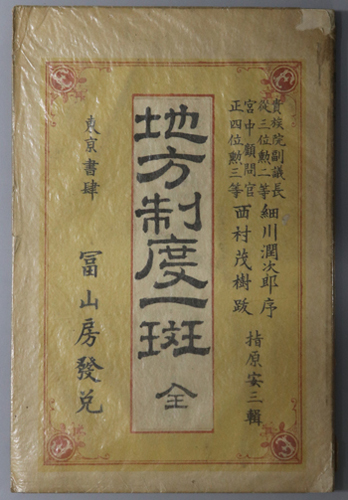 貴族院副議長
從三位勲二等 細川潤次郎序
宮中顧問官
正四位勲三等 西村茂樹跋
指原安三輯
地方制度一斑 全
東京書肆 冨山房發兌